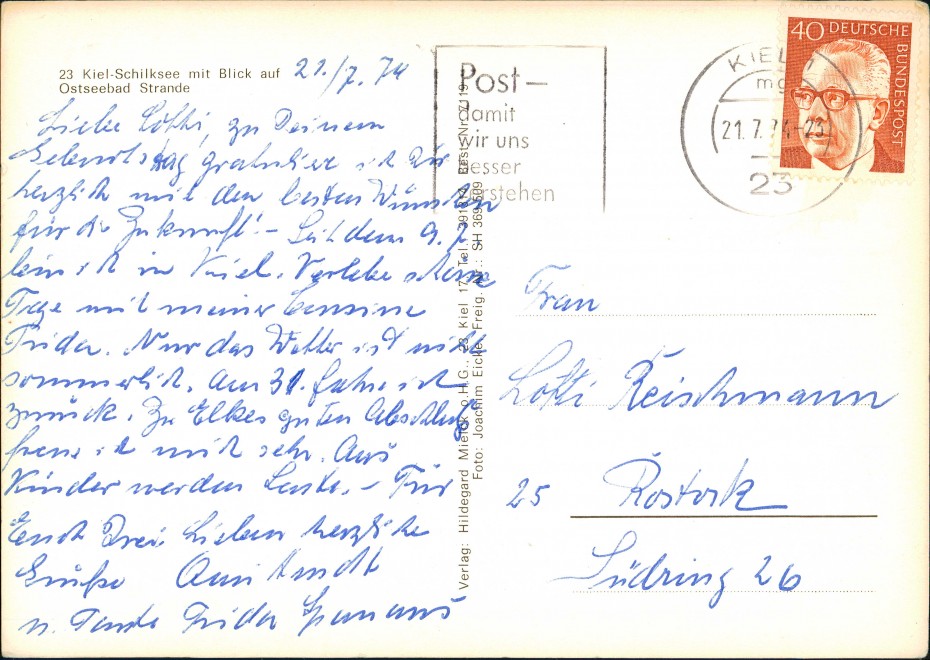 23 Kiel-Schilksee mit Blick auf
Ostseebad Strande
21./7.74
Liebe Lotti, zu Deinem
Geburtstag gratuliere ich Dir
herzlich mit den besten Wünschen
für die Zukunft! - Seit dem 9.7.
bin ich in Kiel. Verlebe schöne
Tage mit meiner Cousine
Frida. Nur das Wetter ist nicht
sommerlich. Am 31. fahre ich
zurück. Zu Elkes guten Abschluß
freue ich mich sehr. Aus
Kinder werden Leute. - Für
Euch Drei Lieben herzliche
Grüße Anni Arndt
u. Tante Frida
Verlag: Hildegard Mielck o.H.G., 23 Kiel 17, Tel.
Foto: Joachim Eicke, Freig. Nr.: SH 369-509
Post-
damit
wir uns
besser
verstehen
KIEL
mg
21.7.74-23
23
40 DEUTSCHE
BUNDESPOST
Frau
Lotti Reischmann
25 Rostock
Südring 26